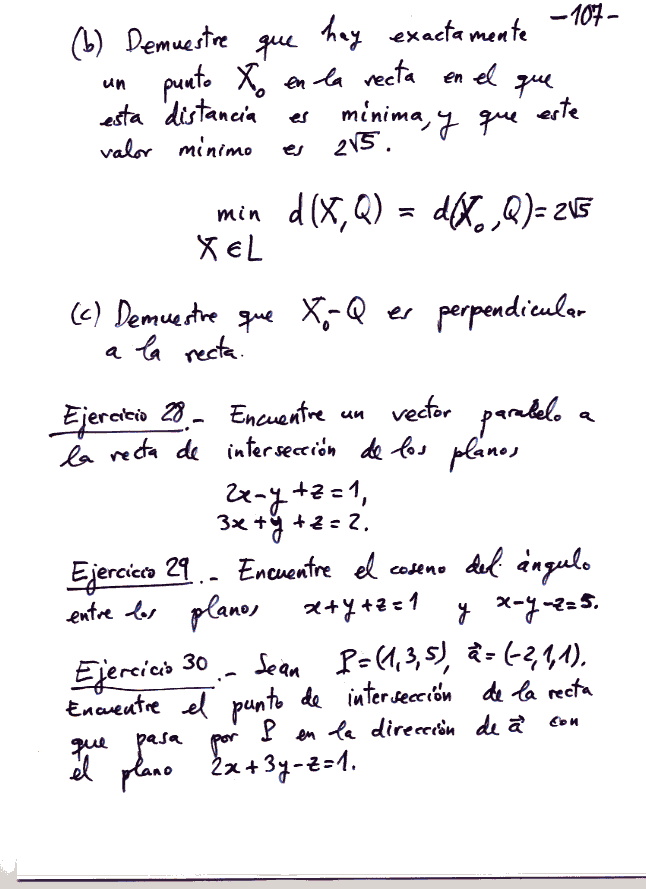 -107-
(b) Demuestre que hay exactamente
un punto X₀ en la recta en el que
esta distancia es mínima, y que este
valor mínimo es 2√5.
min d(X, Q) = d(X₀, Q) = 2√5
X ∈ L
(c) Demuestre que X₀-Q es perpendicular
a la recta.
Ejercicio 28.- Encuentre un vector paralelo a
la recta de intersección de los planos
2x-y+z=1,
3x+y+z=2.
Ejercicio 29.- Encuentre el coseno del ángulo
entre los planos x+y+z=1 y x-y-z=5.
Ejercicio 30.- Sean P=(1,3,5), a⃗=(-2,1,1).
Encuentre el punto de intersección de la recta
que pasa por P en la dirección de a⃗ con
el plano 2x+3y-z=1.